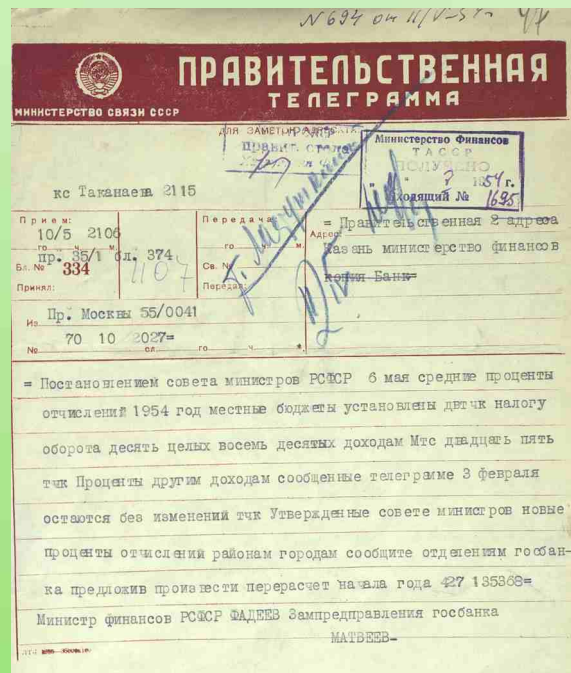 N 694 от 11/V-54 г.
ПРАВИТЕЛЬСТВЕННАЯ
ТЕЛЕГРАММА
МИНИСТЕРСТВО СВЯЗИ СССР
ДЛЯ ЗАМЕТОК АДРЕСАТА
Министерство Финансов
ТАССР
ПОЛУЧЕНО
1954 г.
Входящий № 1695
кс Таканаева 2115
Прием:
10/5 2106
го ч. м.
пр. 35/1 бл. 374
Бл. № 334
Принял:
1107
Передача:
го ч. м.
Св. №
Передал:
Адрес:
= Правительственная 2 адреса
Казань министерство финансов
копия Банк=
Из Пр. Москвы 55/0041
70 10 2027=
№ сл. го ч. м.
= Постановлением совета министров РСФСР 6 мая средние проценты
отчислений 1954 год местные бюджеты установлены двтчк налогу
оборота десять целых восемь десятых доходам Мтс двадцать пять
тчк Проценты другим доходам сообщенные телеграмме 3 февраля
остаются без изменений тчк Утвержденные совете министров новые
проценты отчислений районам городам сообщите отделениям госбан-
ка предложив произвести перерасчет начала года 427 135368=
Министр финансов РСФСР ФАДЕЕВ Зампредправления госбанка
МАТВЕЕВ-